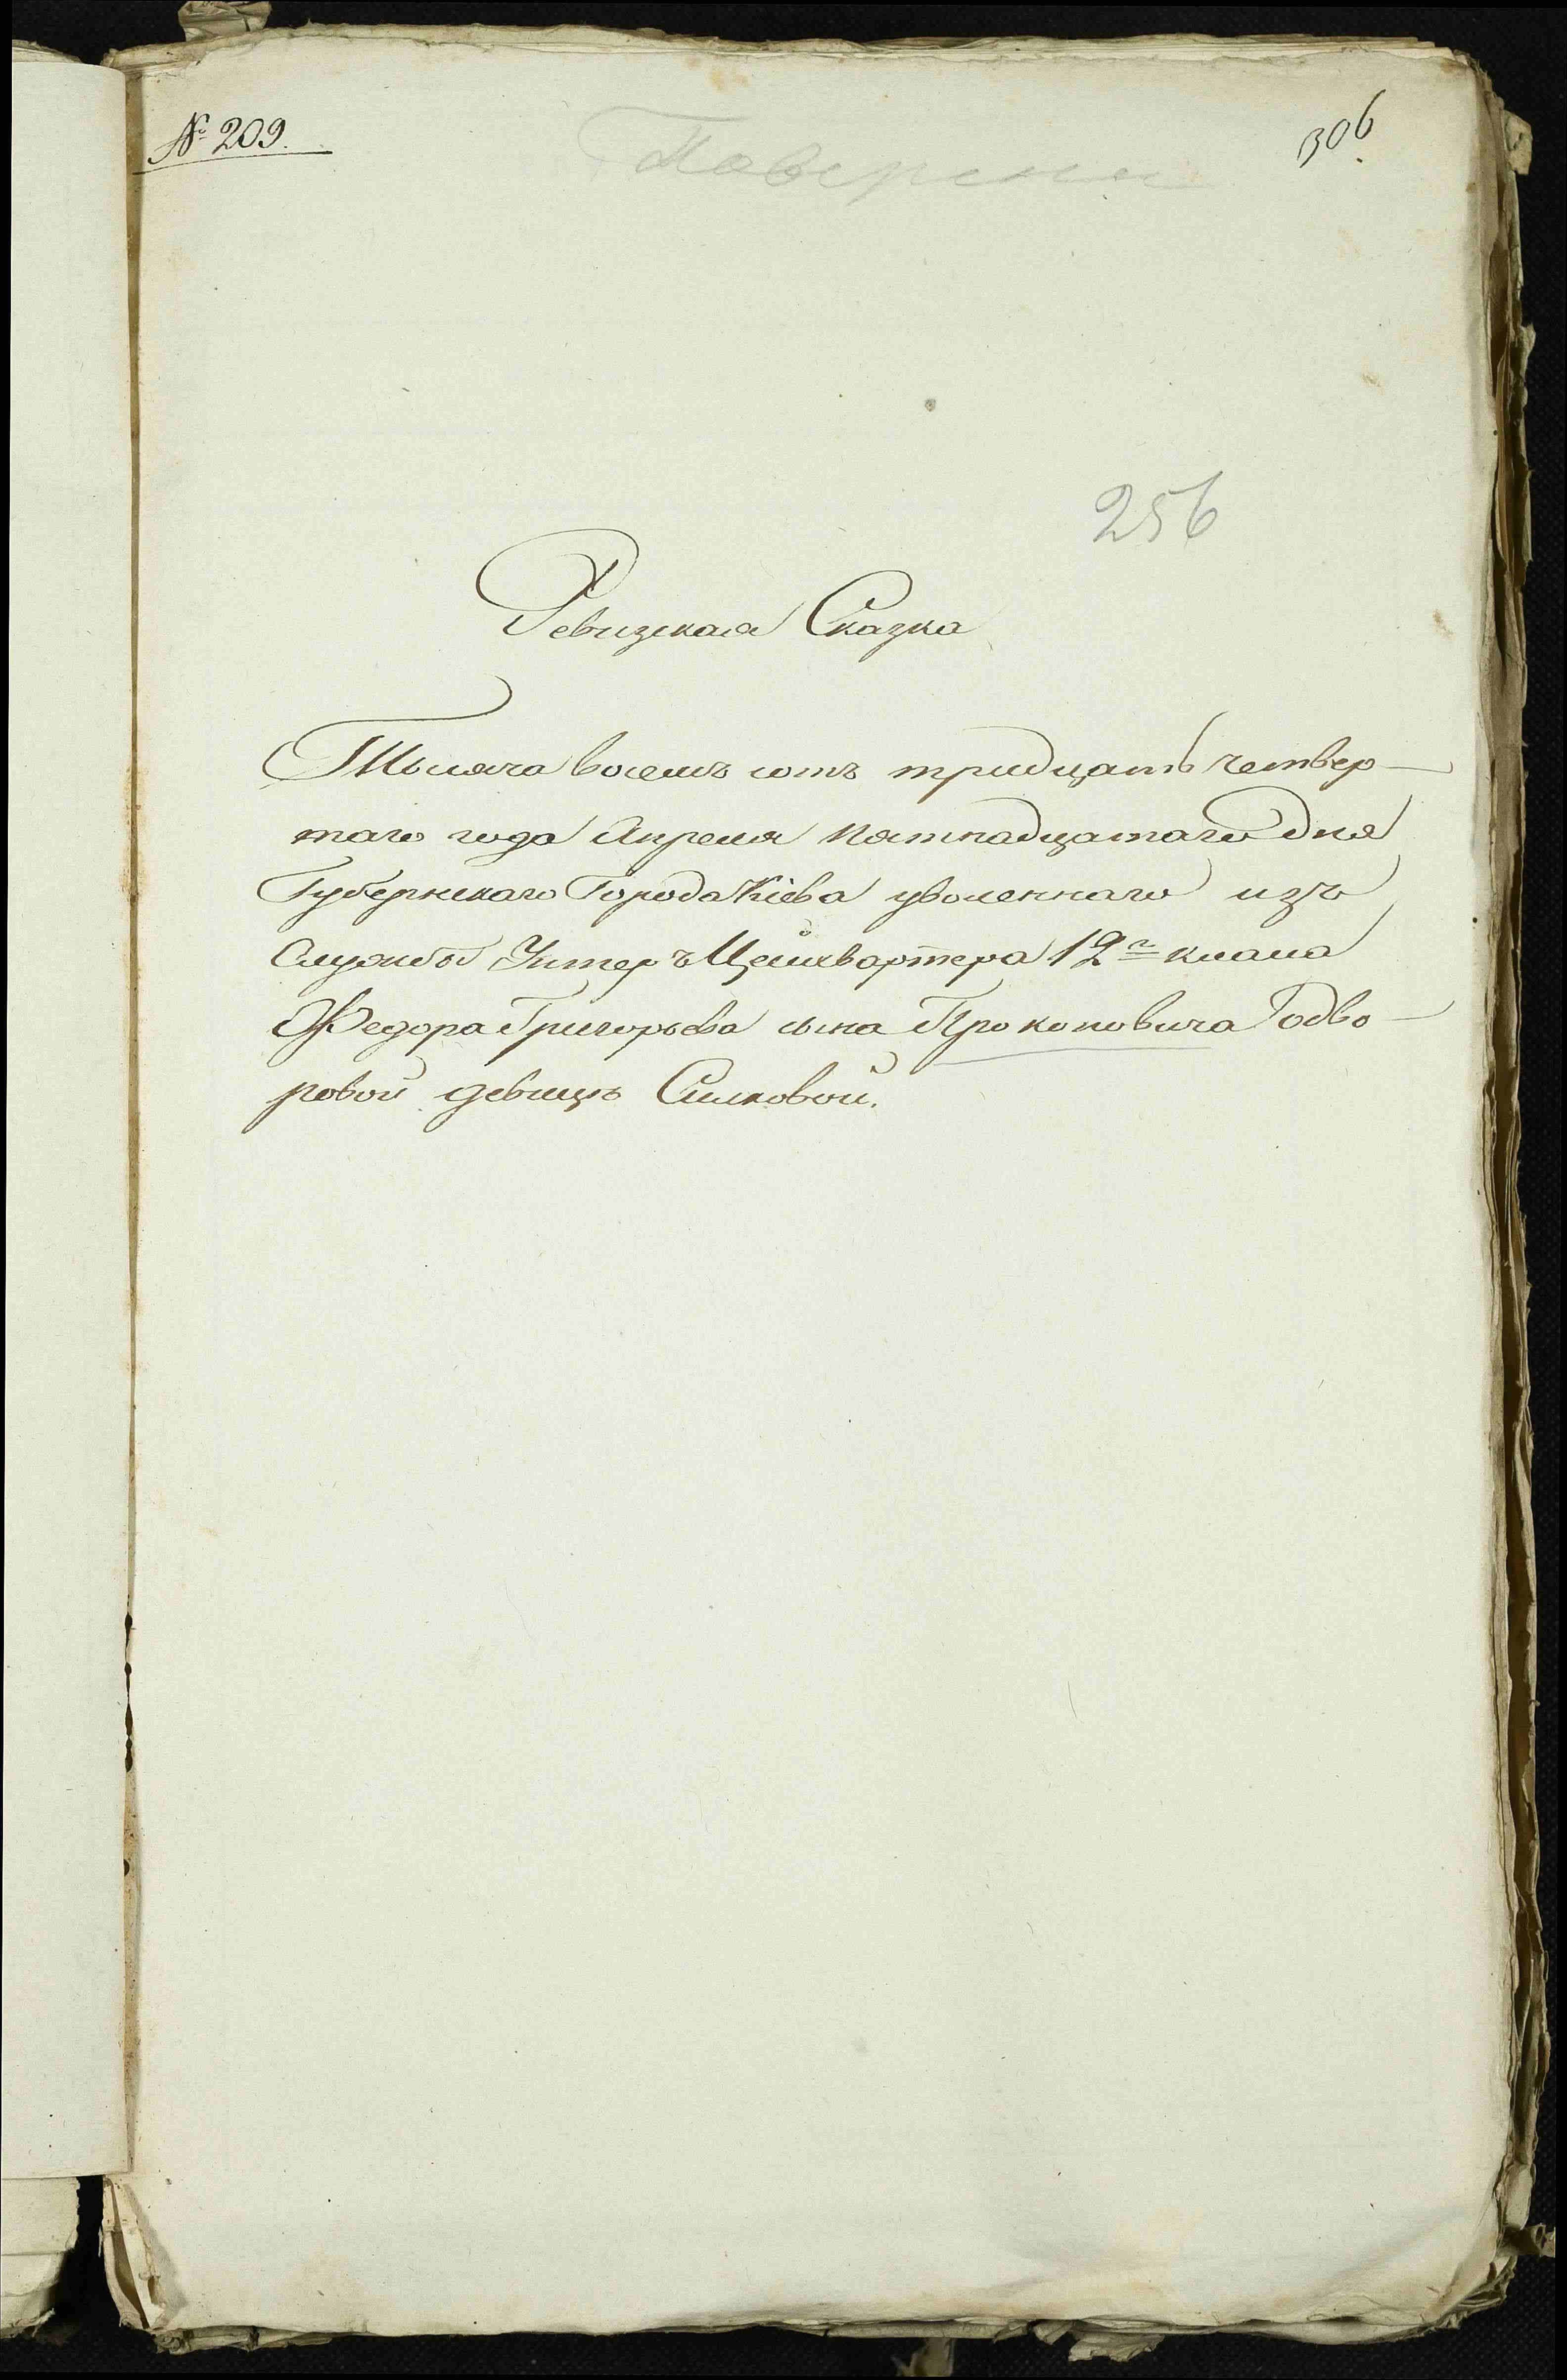 № 209.
306
256
Ревизская Сказка
Тысяча восемь сотъ тридцать четвер-
таго года Апреля пятнадцатаго дня
Губернскаго Города Кіева уволеннаго изъ
Службы Унтеръ Цейхвартера 12го класа
Федора Григорьева сына Прокоповича о дво-
ровой девицъ Силковой.